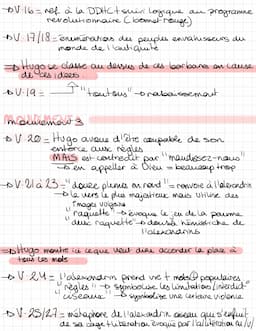 → V.16 = réf à la DDHC + suivi logique au programme
révolutionnaire (bonnet rouge)
→ V.17/18 = énumération des peuples envahisseurs du
monde de l'antiquité
⇒ Hugo se classe au dessus de ces barbares en cause
de ces idées
→ V.19 = "tout sus" → rabaissement
MOUVEMENT 3
mouvement 3
→ V.20 - Hugo avoue d'être coupable de son
entorse aux règles
MAIS est contredit par "maudissez-nous"
↳ en appeler à Dieu → beaucoup trop
→ V.21 à 23 - "douze plumes en rond" = renvoie à l'alexandrin
↳ le vers le plus majestueux mais utilise des
images vulgaires
"raquette" → évoque le jeu de la paume
avec raquette → donc la hiérarchie de
l'alexandrin
⇒ Hugo montre ici ce que veut dire accorder la place à
tous les mots
→ V.24 = l'alexandrin prend vie + mots populaires
"règles" → symbolise les limitations/interdit
"ciseaux" → symbolise une certaine violence
→ V.25/27 = métaphore de l'alexandrin oiseau qui s'enfuit
de sa cage + libération évoqué par l'allitération en /v/